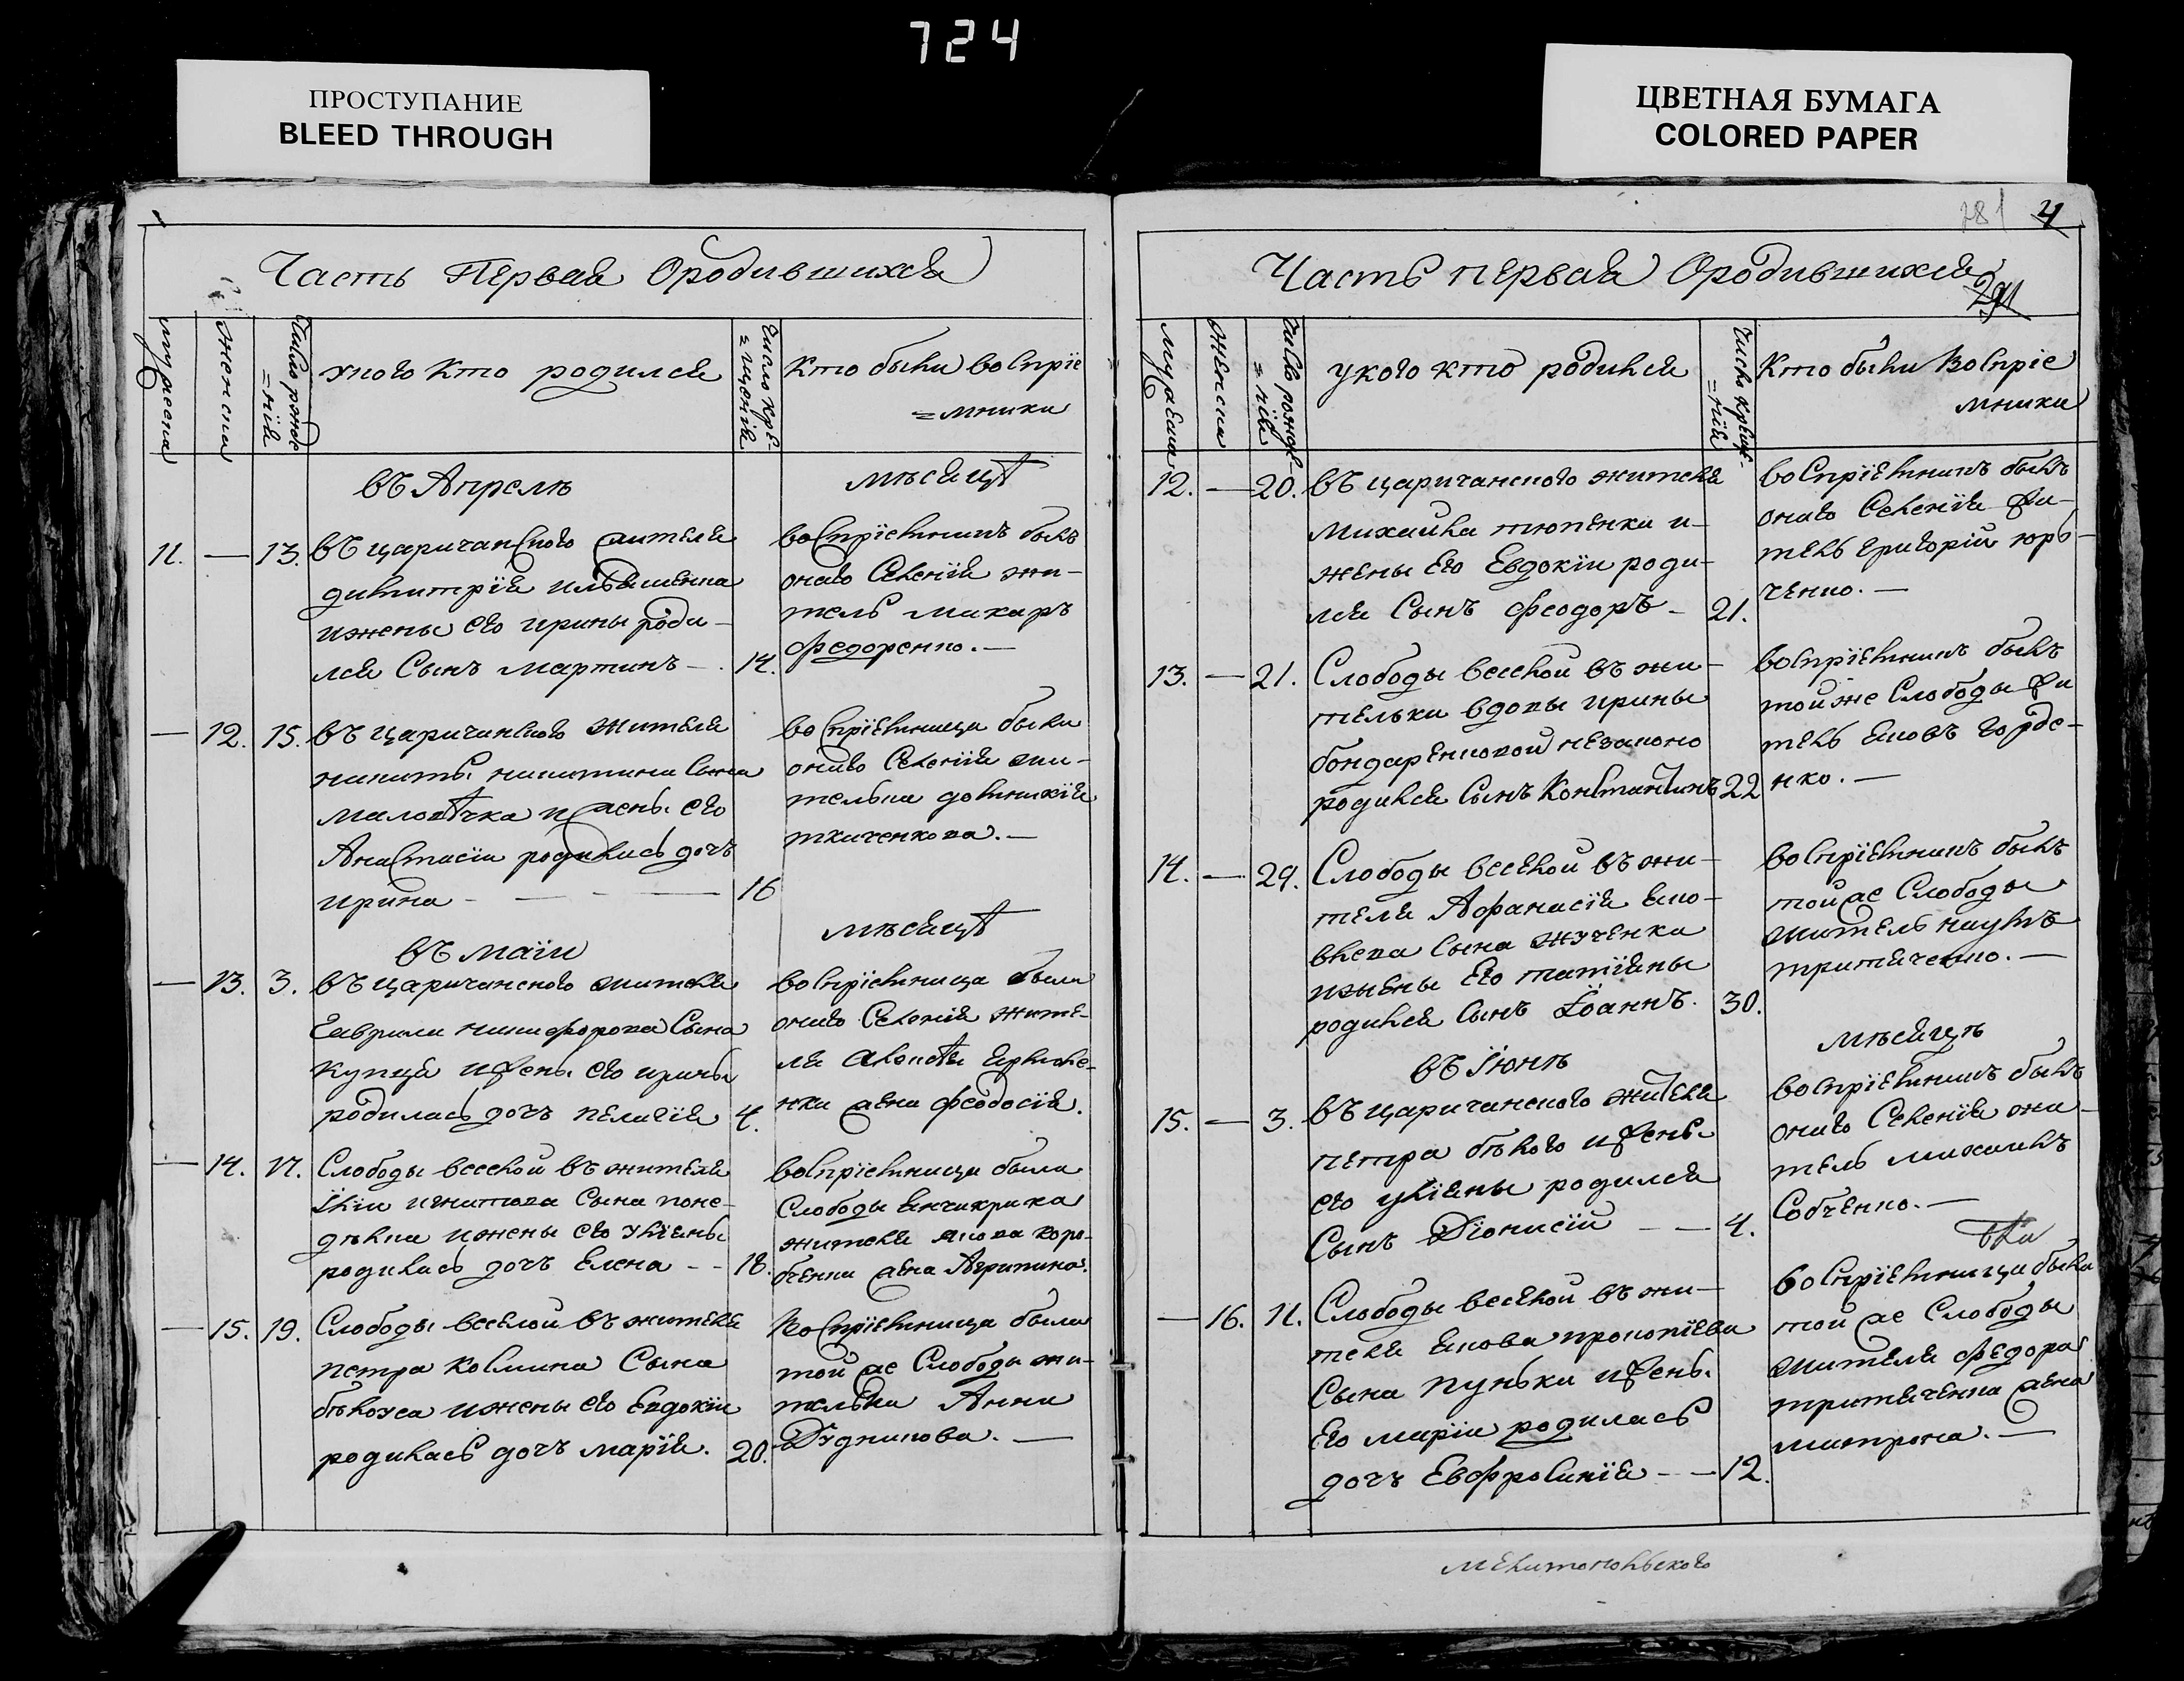 724
ПРОСТУПАНИЕ
BLEED THROUGH
ЦВЕТНАЯ БУМАГА
COLORED PAPER
Часть Первая Ородившихся
мужеска
женска
Число рожде
=нія
укого кто родился
Число кре-
=щенія
Кто были воспріе
=мники
въ Апреле
мѣсяцѣ
11. — 13. въ царичанского жителя
димитрія ильяшенка
ижены его ирины роди-
лся Сынъ мартинъ — 14.
воспріемникъ былъ
онаго Селенія жи-
тель макаръ
федоренко. —
— 12. 15. въ царичанского жителя
никиты никитина сына
малолѣтка и жены его
Анастасіи родилась дочъ
ирина — — — 16
воспріемница была
онаго Селенія жи-
телька домникія
ткаченкова. —
въ маіи
мѣсяцѣ
— 13. 3. въ царичанского жителя
гаврили никифорова Сына
купця и жены его ирины
родилась дочъ пелагія 4.
воспріемница была
онаго Селенія жите-
ля
жена феодосія.
— 14. 17. Слободы веселой въ жителя
Сына поне-
дѣлка ижены его уліяны
родилась дочъ Елена — — 18.
воспріемница была
Слободы Енчикрика
жителя якова коро-
бченка жена Агрипина.
— 15. 19. Слободы веселой въ жителя
петра космина Сына
бѣлоуса ижены его Евдокіи
родилась дочъ марія. 20.
Воспріемница была
той же Слободы жи-
телька Анна
Дудникова. —
281 4
291
Часть первая Ородившихся
мужеска
женска
Число рожде-
=нія
укого кто родился
Число креще-
=нія
Кто были Воспріе
мники
12. — 20. въ царичанского жителя
михаила тюпенка и-
жены его Евдокіи роди-
лся Сынъ феодоръ — 21.
воспріемникъ былъ
онаго Селенія жи-
тель григорій юрь-
ченко. —
13. — 21. Слободы веселой въ жи-
тельки вдовы ирины
бондаренковой незаконо
родился Сынъ Константинъ 22
воспріемникъ былъ
той же Слободы жи
тель яковъ горде-
нко. —
14. — 29. Слободы веселой въ жи-
теля Афанасія яко-
влева Сына жученка
ижены его татіяны
родился Сынъ Іоаннъ. 30.
воспріемникъ былъ
той же Слободы
житель наумъ
тритяченко. —
въ іюнѣ
мѣсяцѣ
15. — 3. въ царичанского жителя
петра бѣлого и жены
его уліяны родился
Сынъ Діонисій — — 4.
воспріемникъ былъ
онаго Селенія жи
тель михаилъ
Собченко. —
— 16. 11. Слободы веселой въ жи-
теля якова прокопіева
Сына пуньки и жены
его маріи родилась
дочъ Евфросинія — — 12.
воспріемница была
той же Слободы
жителя федора
тритяченка жена
матрона. —
мелитопольского